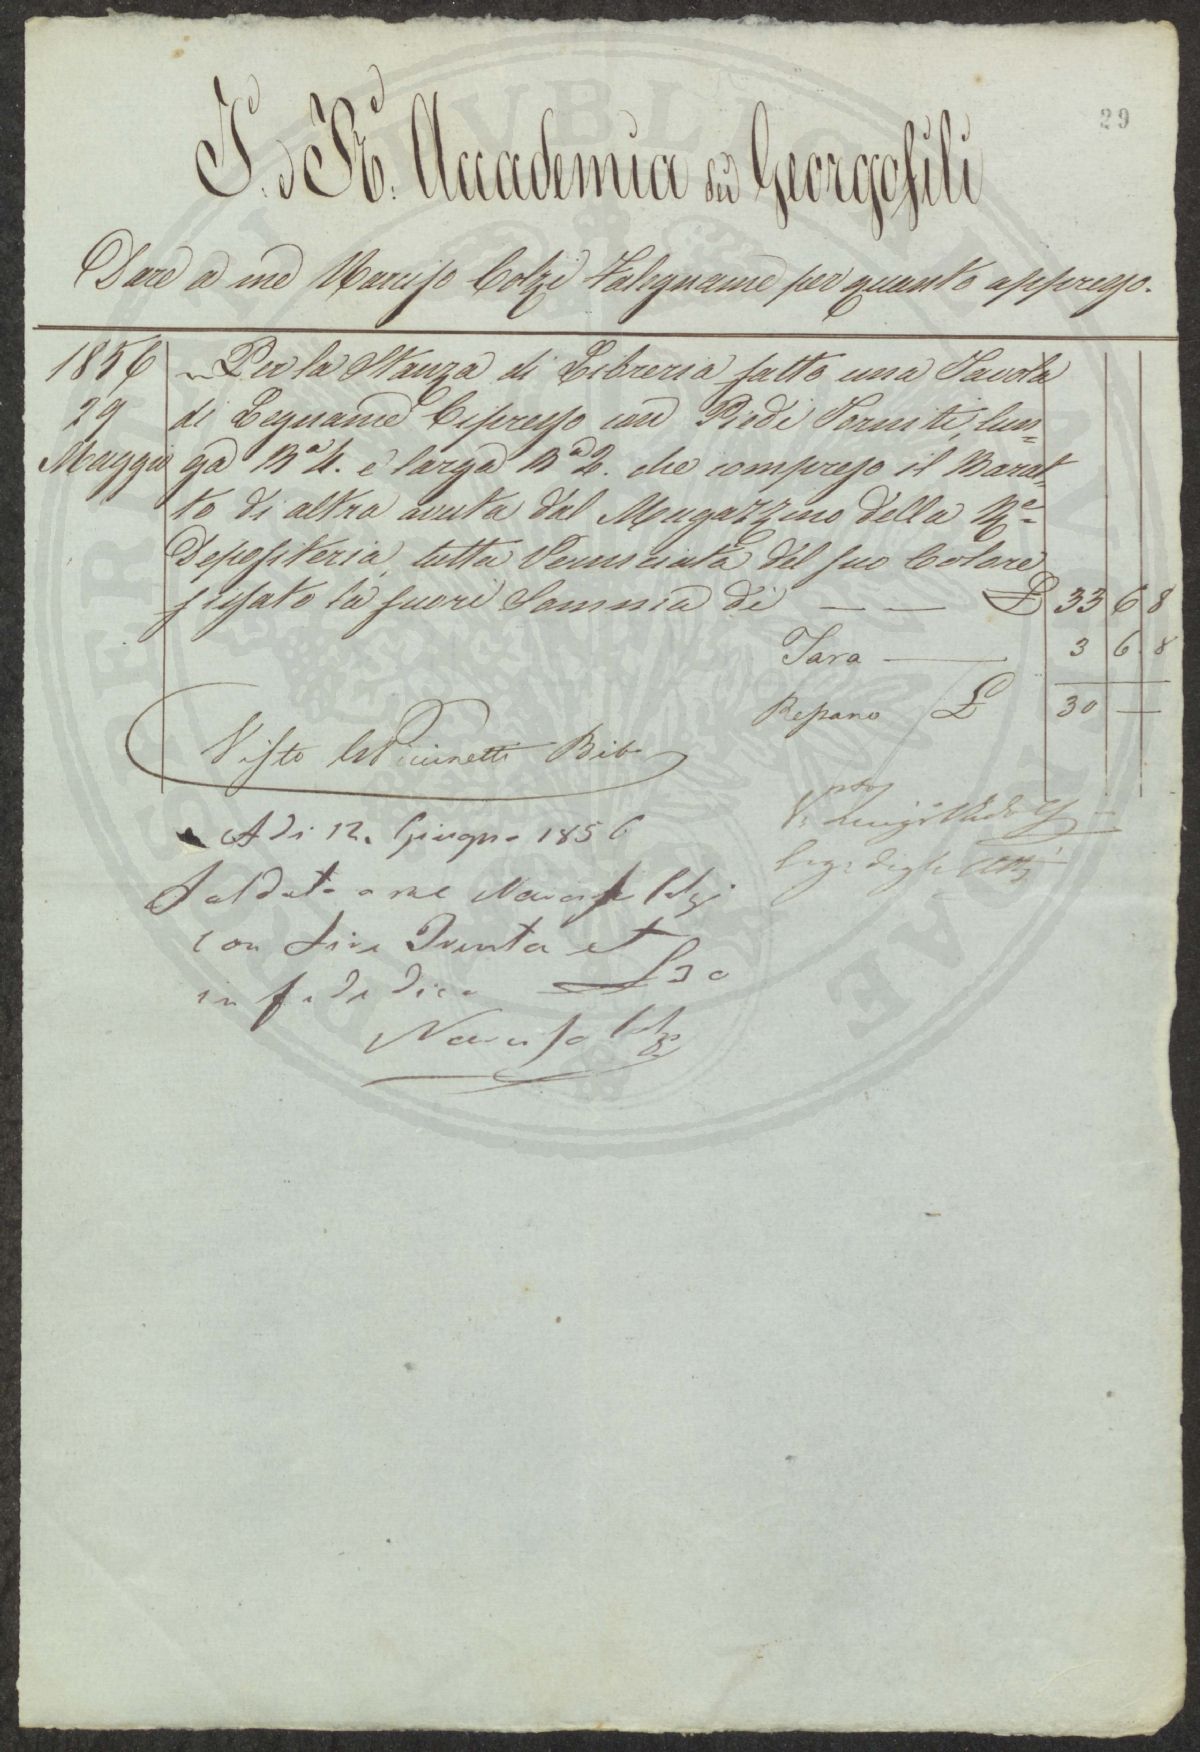 29
I. e R. Accademia dei Georgofili
Dare a me Narciso Colzi Falegname per quanto appresso.
1856 Per la Stanza di Libreria fatto una Tavola
29 di Legname Cipresso con Piedi Torniti, lun-
Maggio ga Ba 4. e larga Ba 2. che compreso il Barat-
to di altra avuta dal Magazzino della Re
Depositeria, tutta Verniciata del suo Colore
fissato la fuori Somma di — — £ 33 6 8
Tara — 3 6 8
Restano £ 30 —
Visto Piccinetti Bibo
Visto Luigi
Seg. degli Atti
A di 12. Giugno 1856
Saldato a me Narciso Colzi
con Lire Trenta et
in fede dico £ 30
Narciso Colzi